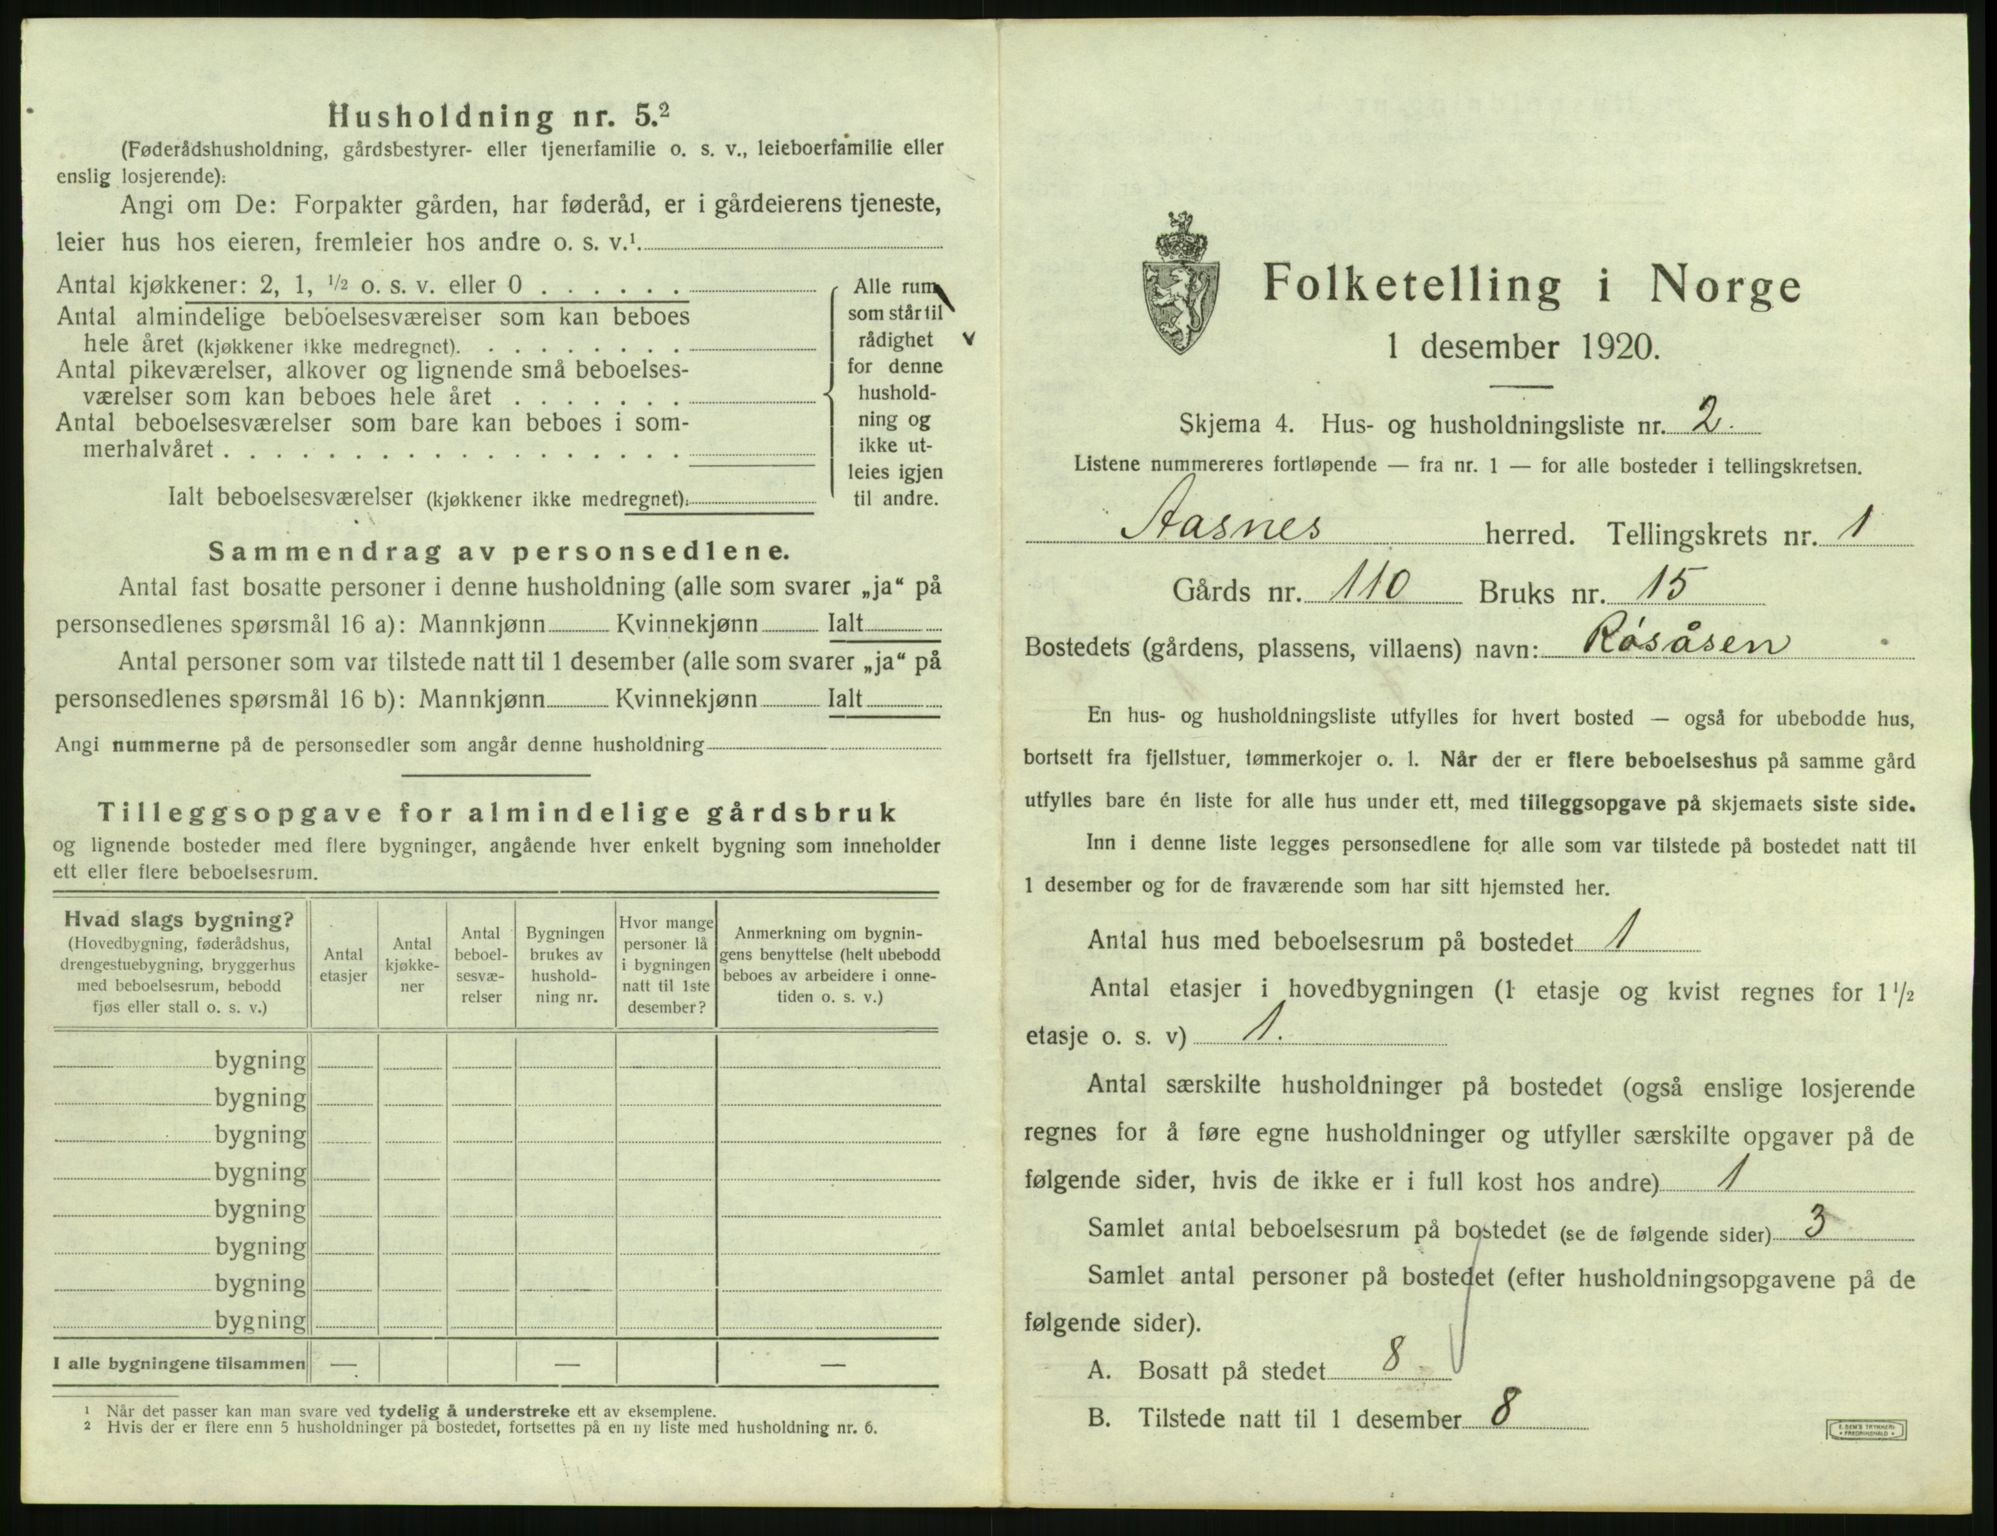 Husholdning nr. 5.²
(Føderådshusholdning, gårdsbestyrer- eller tjenerfamilie o. s. v., leieboerfamilie eller
enslig losjerende):
Angi om De: Forpakter gården, har føderåd, er i gårdeierens tjeneste,
leier hus hos eieren, fremleier hos andre o. s. v.¹
Antal kjøkkener: 2, 1, ½ o. s. v. eller 0 . . . . . .
Antal almindelige beboelsesværelser som kan beboes
hele året (kjøkkener ikke medregnet). . . . . . . . .
Antal pikeværelser, alkover og lignende små beboelses-
værelser som kan beboes hele året . . . . . . .
Antal beboelsesværelser som bare kan beboes i som-
merhalvåret . . . . . . . . . . . . . . . . . .
Ialt beboelsesværelser (kjøkkener ikke medregnet):
Alle rum
som står til
rådighet
for denne
hushold-
ning og
ikke ut-
leies igjen
til andre.
Sammendrag av personsedlene.
Antal fast bosatte personer i denne husholdning (alle som svarer „ja“ på
personsedlenes spørsmål 16 a): Mannkjønn Kvinnekjønn Ialt
Antal personer som var tilstede natt til 1 desember (alle som svarer „ja“ på
personsedlenes spørsmål 16 b): Mannkjønn Kvinnekjønn Ialt
Angi nummerne på de personsedler som angår denne husholdning
Tilleggsopgave for almindelige gårdsbruk
og lignende bosteder med flere bygninger, angående hver enkelt bygning som inneholder
ett eller flere beboelsesrum.
Hvad slags bygning?
(Hovedbygning, føderådshus,
drengestuebygning, bryggerhus
med beboelsesrum, bebodd
fjøs eller stall o. s. v.)
Antal
etasjer
Antal
kjøkke-
ner
Antal
beboel-
sesvæ-
relser
Bygningen
brukes av
hushold-
ning nr.
Hvor mange
personer lå
i bygningen
natt til 1ste
desember?
Anmerkning om bygnin-
gens benyttelse (helt ubebodd
beboes av arbeidere i onne-
tiden o. s. v.)
bygning
bygning
bygning
bygning
bygning
bygning
bygning
bygning
I alle bygningene tilsammen — — —
¹ Når det passer kan man svare ved tydelig å understreke ett av eksemplene.
² Hvis der er flere enn 5 husholdninger på bostedet, fortsettes på en ny liste med husholdning nr. 6.
Folketelling i Norge
1 desember 1920.
Skjema 4. Hus- og husholdningsliste nr. 2.
Listene nummereres fortløpende — fra nr. 1 — for alle bosteder i tellingskretsen.
Aasnes herred. Tellingskrets nr. 1
Gårds nr. 110 Bruks nr. 15
Bostedets (gårdens, plassens, villaens) navn: Røsåsen
En hus- og husholdningsliste utfylles for hvert bosted — også for ubebodde hus,
bortsett fra fjellstuer, tømmerkojer o. l. Når der er flere beboelseshus på samme gård
utfylles bare én liste for alle hus under ett, med tilleggsopgave på skjemaets siste side.
Inn i denne liste legges personsedlene for alle som var tilstede på bostedet natt til
1 desember og for de fraværende som har sitt hjemsted her.
Antal hus med beboelsesrum på bostedet 1
Antal etasjer i hovedbygningen (1 etasje og kvist regnes for 1½
etasje o. s. v) 1.
Antal særskilte husholdninger på bostedet (også enslige losjerende
regnes for å føre egne husholdninger og utfyller særskilte opgaver på de
følgende sider, hvis de ikke er i full kost hos andre) 1
Samlet antal beboelsesrum på bostedet (se de følgende sider) 3
Samlet antal personer på bostedet (efter husholdningsopgavene på de
følgende sider).
A. Bosatt på stedet 8
B. Tilstede natt til 1 desember 8